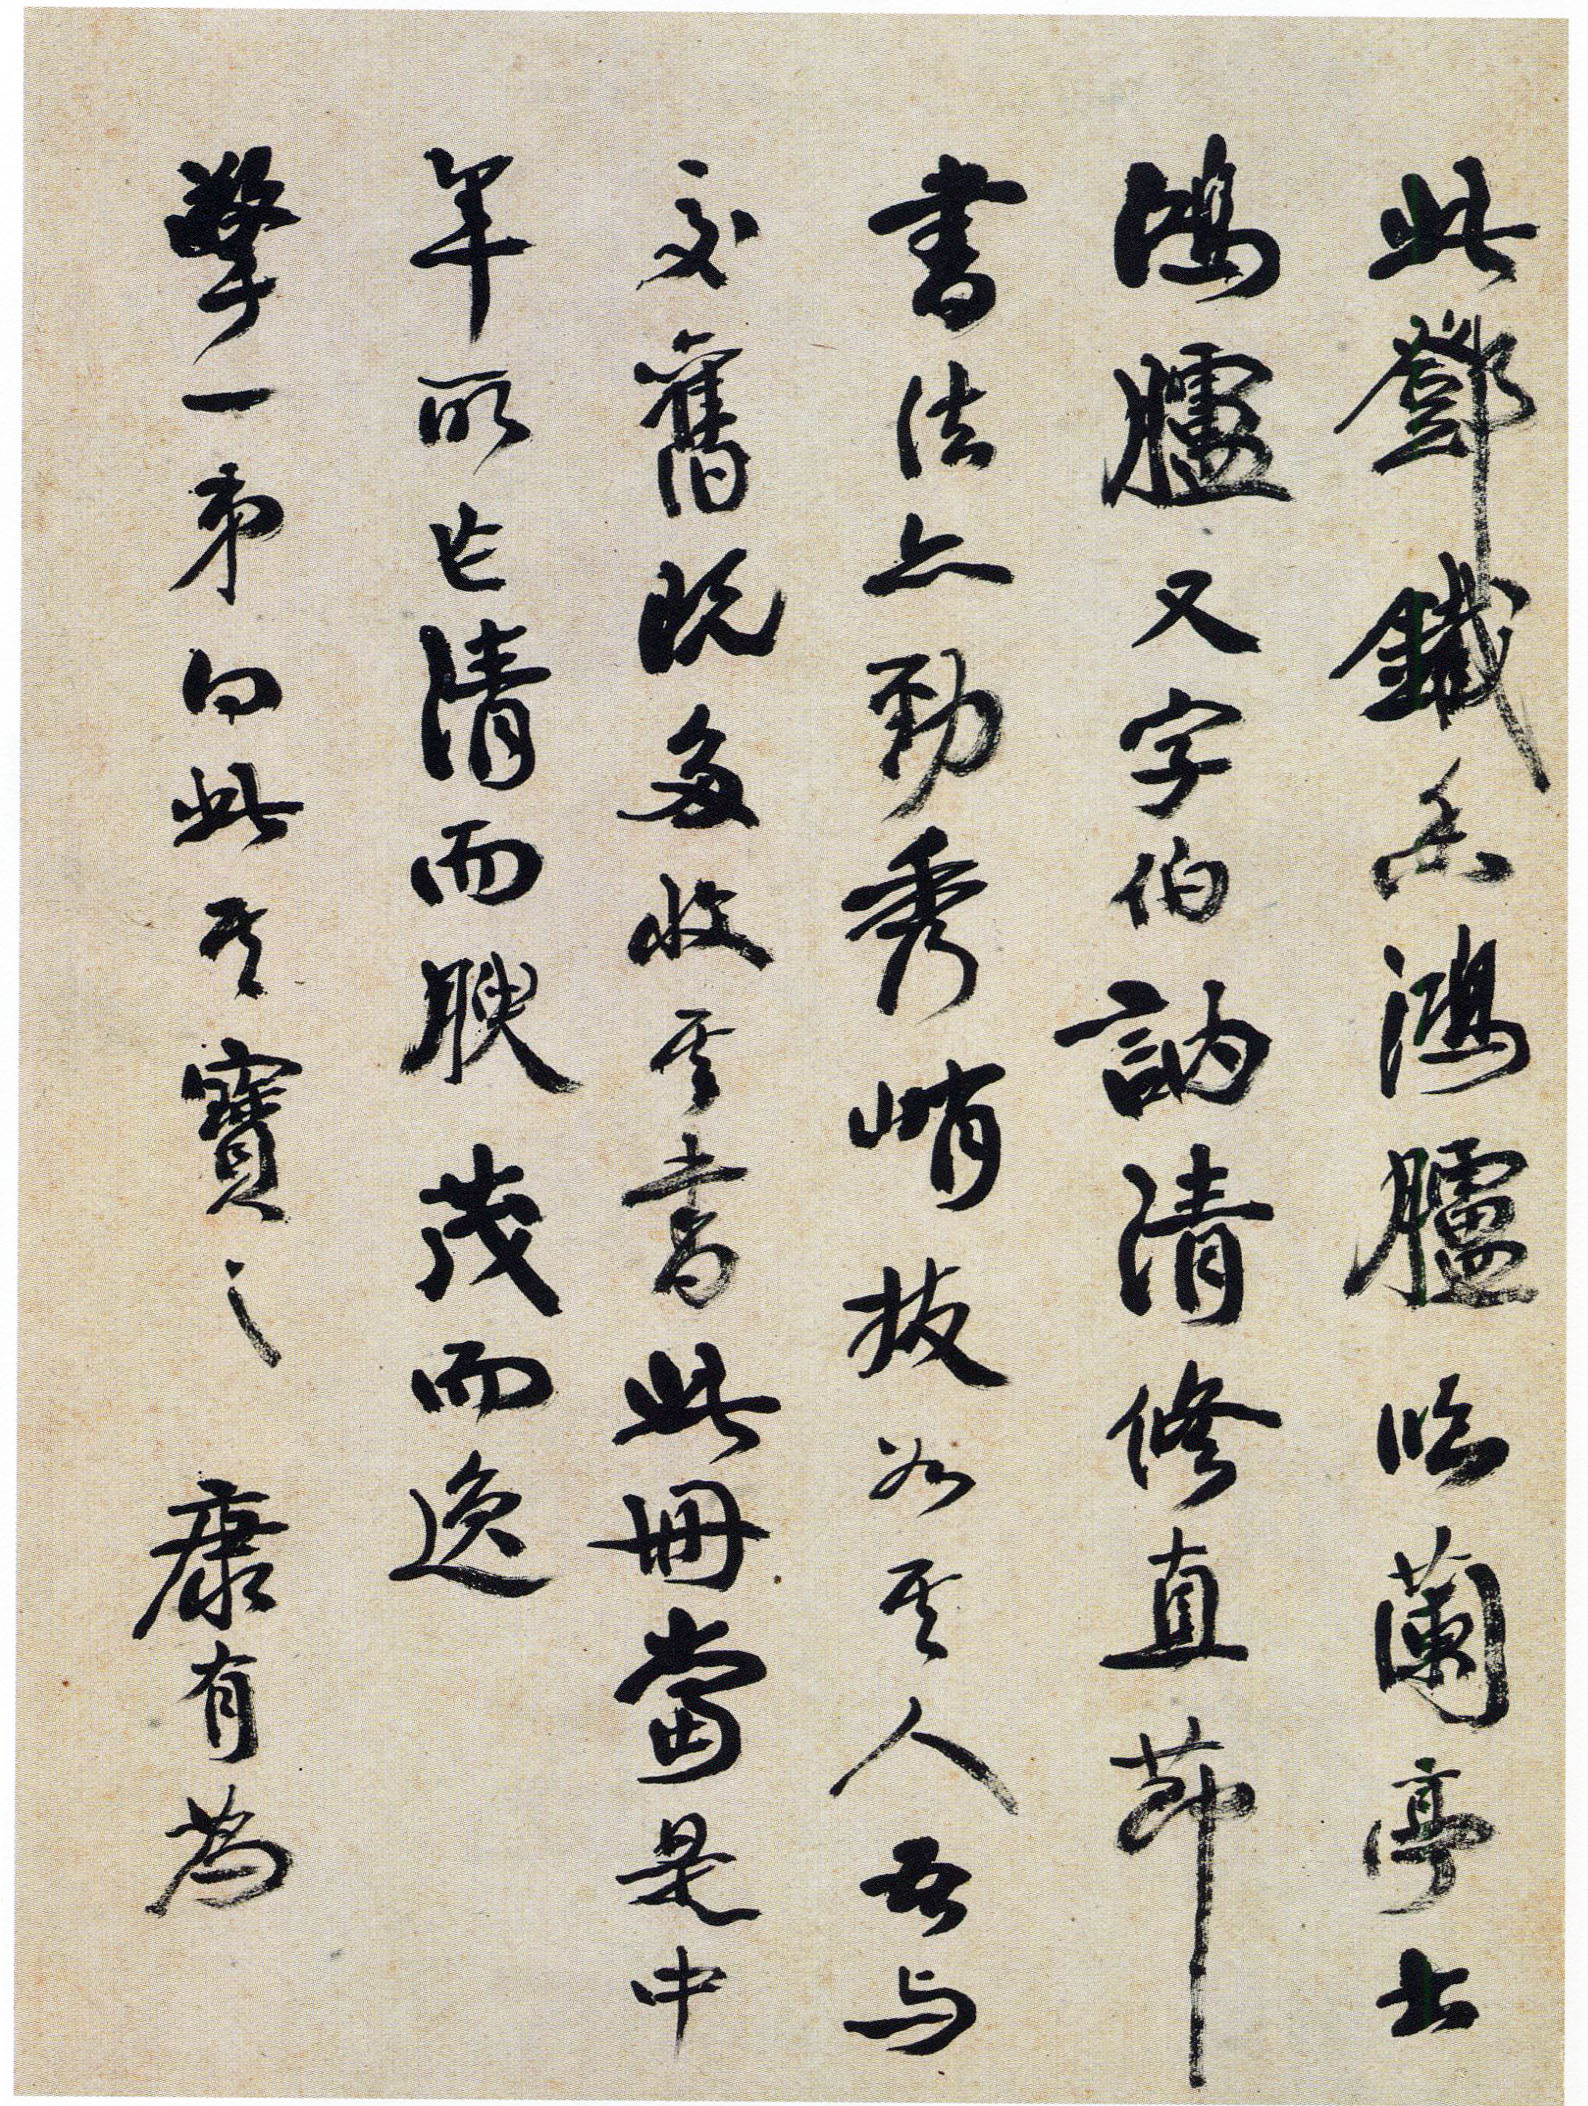 此鄧鐵香鴻臚臨蘭亭
鴻臚又字伯訥清修直節
書法亦勁秀峭拔如其人吾与
交舊既多收其書此冊當是中
年所作清而腴茂而逸
擎一弟此其寶之 康有為